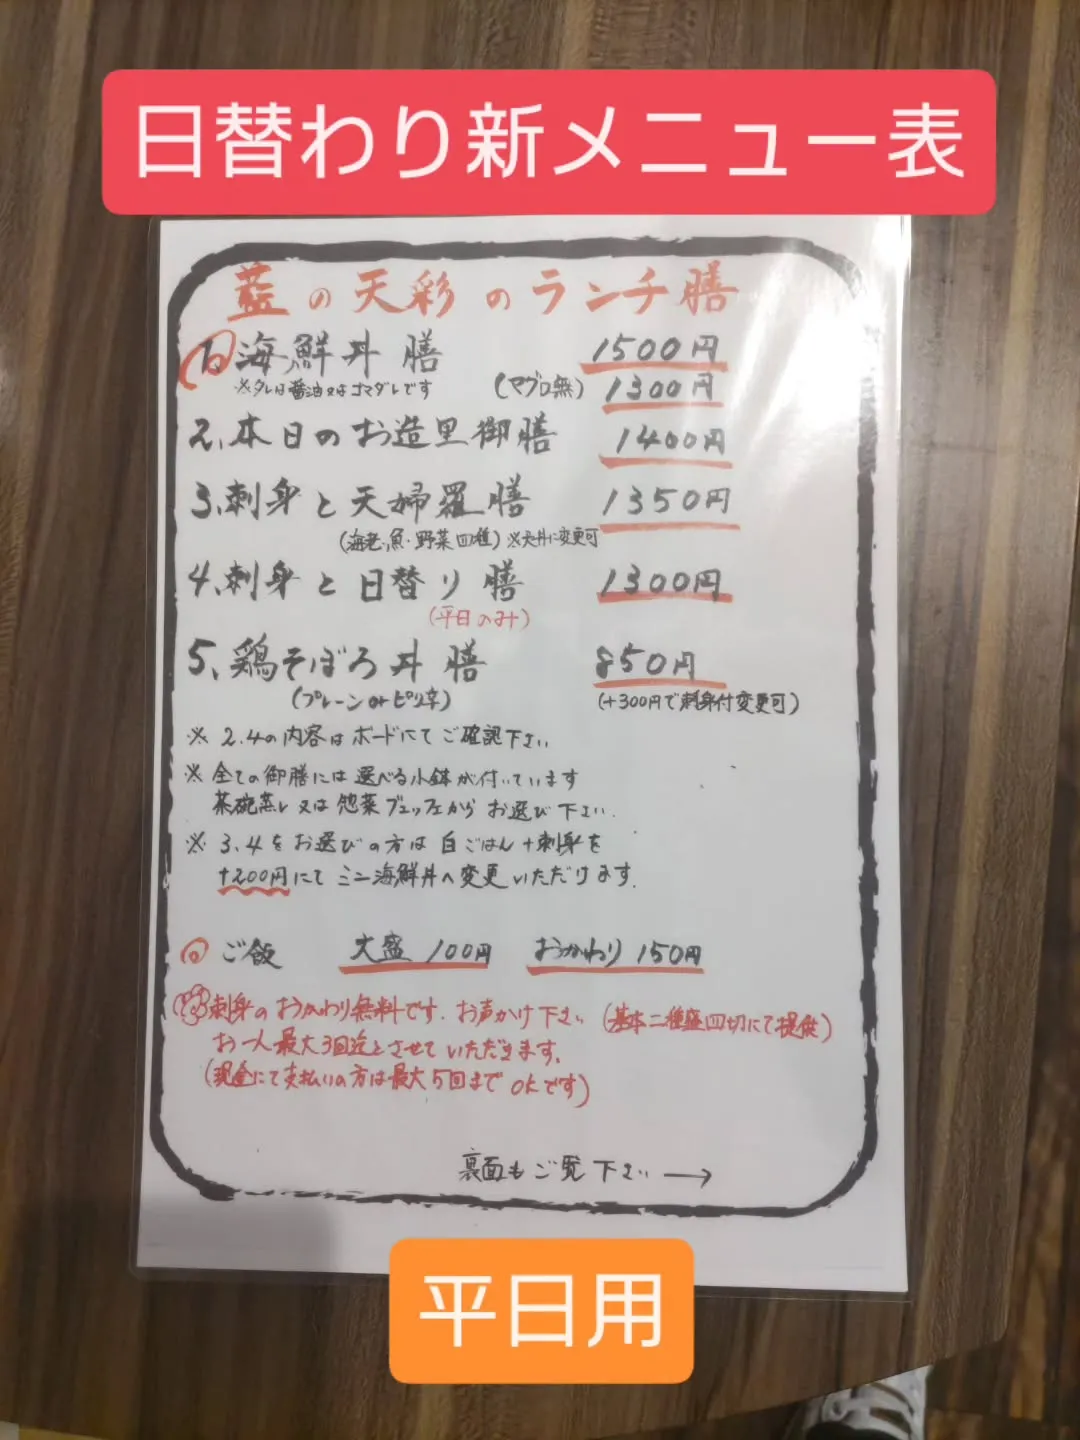 日替わり新メニュー表
藍の天彩のランチ膳
1、海鮮丼膳 1500円
※タレは醤油又はゴマダレです (マグロ無) 1300円
2、本日のお造里御膳 1400円
3、刺身と天婦羅膳 1350円
(海老、魚・野菜四種)※天丼に変更可
4、刺身と日替り膳 1300円
(平日のみ)
5、鶏そぼろ丼膳 850円
(プレーンorピリ辛) (+300円で刺身付変更可)
※ 2.4の内容はボードにてご確認下さい
※ 全ての御膳には選べる小鉢が付いています
茶碗蒸し又は惣菜ブュッフェからお選び下さい.
※ 3.4をお選びの方は白ごはん+刺身を
+200円にてミニ海鮮丼へ変更いただけます.
ご飯 大盛 100円 おかわり 150円
刺身のおかわり無料です. お声かけ下さい (基本二種盛四切にて提供)
お一人最大3回迄とさせていただきます.
(現金にて支払いの方は最大5回までOKです)
裏面もご覧下さい→
平日用